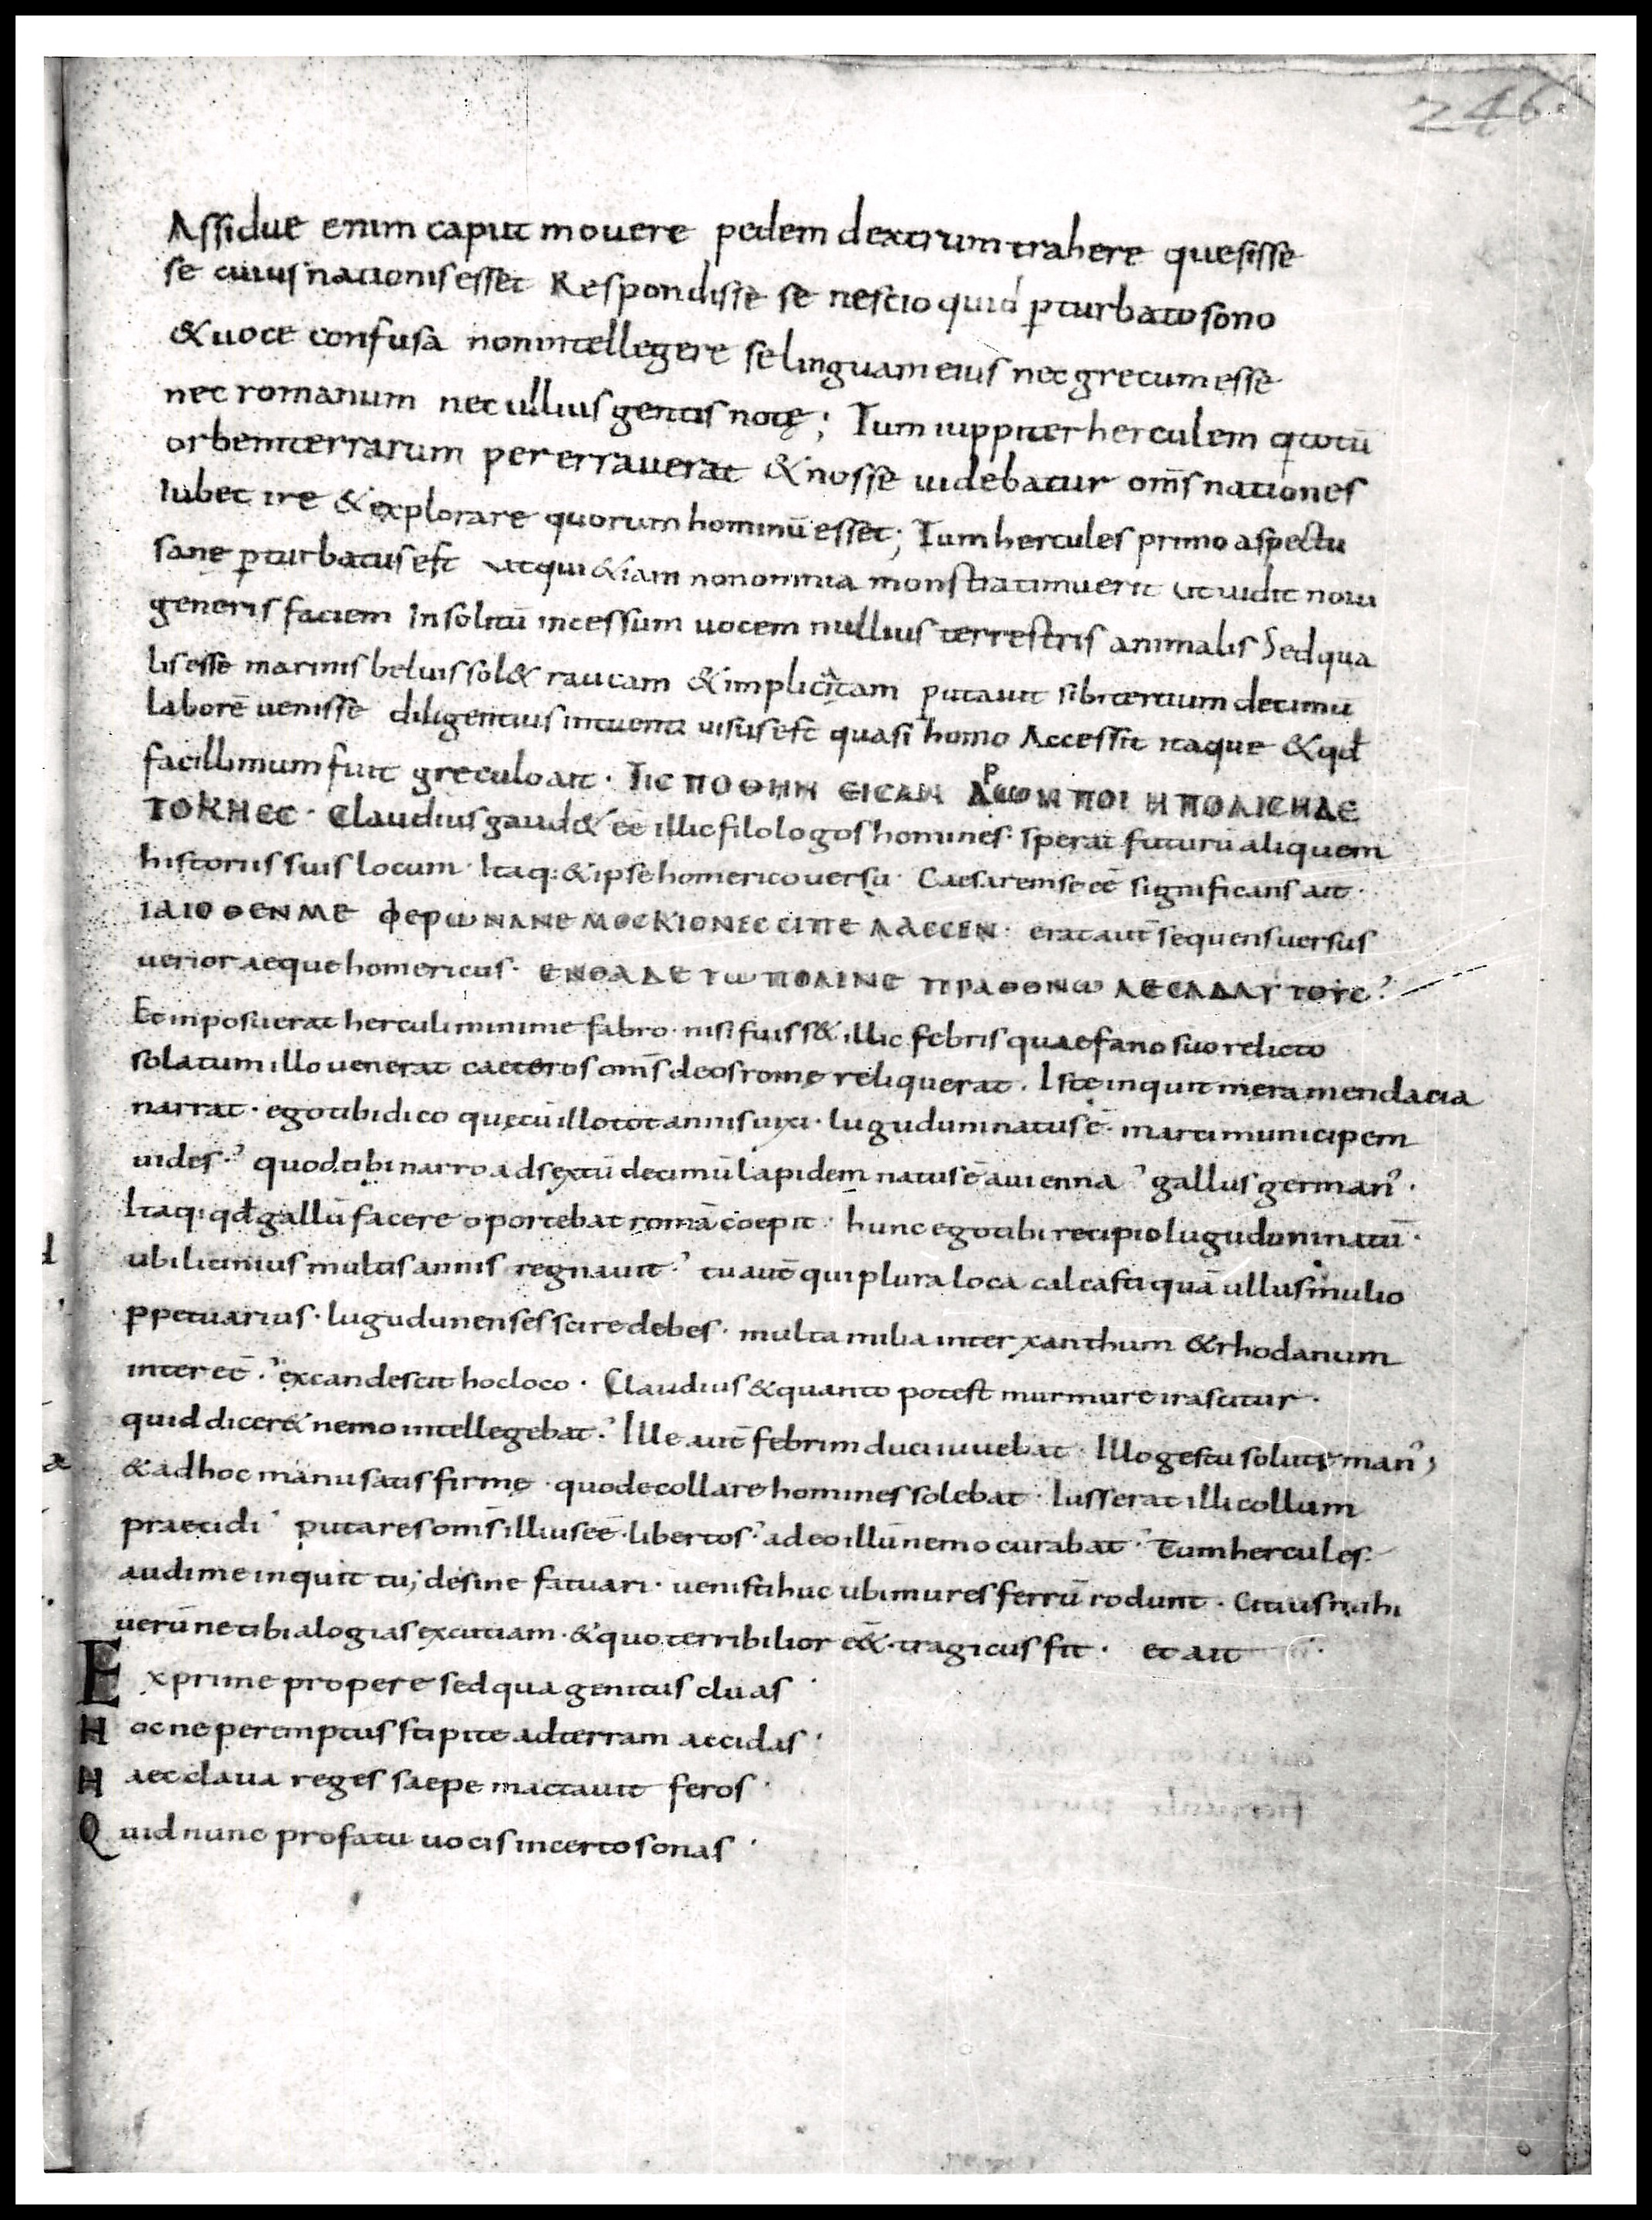 246.
Assidue enim caput mouere pedem dextrum trahere quesisse
se cuius nationis esset Respondisse se nescio quid ꝑturbato sono
& uoce confusa non intellegere se linguam eius nec grecum esse
nec romanum nec ullius gentis notę; Tum iuppiter herculem q̇ totū
orbem terrarum pererrauerat & nosse uidebatur om̄s nationes
Iubet ire & explorare quorum hominū esset; Tum hercules primo aspectu
sane ꝑturbatus est ut qui &iam non omnia monstra timuerit ut uidit noui
generis faciem Insolitū incessum uocem nullius terrestris animalis Sed qua
lis esse marinis beluis sol& raucam & implicitam putauit sibi tertium decimū
Laborē uenisse diligentius intuenti uisus est quasi homo Accessit itaque & qđ
facillimum fuit greculo ait · ΤΙC ΠΟΘΗΝ ΕΙCΑΝ ΑΡωΝ ΠΟΙ Η ΠΟΛΙCΗΔΕ
ΤΟΚΗΕC · Claudius gaud& ēē illic filologos homines · sperat futurū aliquem
historiis suis locum · Itaq: & ipse homerico uersu · Caesarem se ēē significans ait ·
ΙΛΙΟΘΕΝ ΜΕ ΦΕΡωΝ ΑΝΕΜΟC ΚΙΟΝΕCCΙ ΠΕΛΑCCΕΝ · erat aut̄ sequens uersus
uerior aeque homericus · ΕΝΘΑΔΕ ΤωΠΟΛΙΝΕ ΠΡΑΘΟΝω ΛΕCΑΔΑΥΤΟΥC ?
Et inposuerat herculi minime fabro · nisi fuiss& illic febris quae fano suo relicto
sola tum illo uenerat caeteros om̄s deos romę reliquerat . Iste inquit mera mendacia
narrat · ego tibi dico quę cū illo tot annis uixi · luguduni natus ē · marci municipem
uides · quod tibi narro ad sextū decimū lapidem natus ē a uienna gallus german᾽ ·
Itaq: qđ gallū facere oportebat romā coepit · hunc ego tibi recipio luguduni natū ·
ubi licinius multis annis regnauit · tu aut̄ qui plura loca calcasti quā ullus mulio
ꝑpetuarius · lugudunenses scire debes · multa milia inter xanthum & rhodanum
inter ēē · excandescit hoc loco · Claudius & quanto potest murmure irascitur ·
quid dicer& nemo intellegebat · Ille aut̄ febrim duci iuuebat · Illo gestu solutę man᾽;
& ad hoc manu satis firmę · quo decollare homines solebat · Iusserat illi collum
praecidi putares om̄s illius ēē · libertos · adeo illū nemo curabat · Tum hercules
audi me inquit tu; desine fatuari · uenisti huc ubi mures ferrū rodunt · Citius mihi
uerū ne tibi alogias excutiam · & quo terribilior e&· tragicus fit · et ait
Exprime propere sed qua genitus cluas
Hoc ne peremptus stipite ad terram accidas
Haec claua reges saepe mactauit feros
Quid nunc profatu uocis incerto sonas